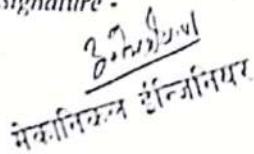 Signature -
मेकानिकल ईन्जिनियर